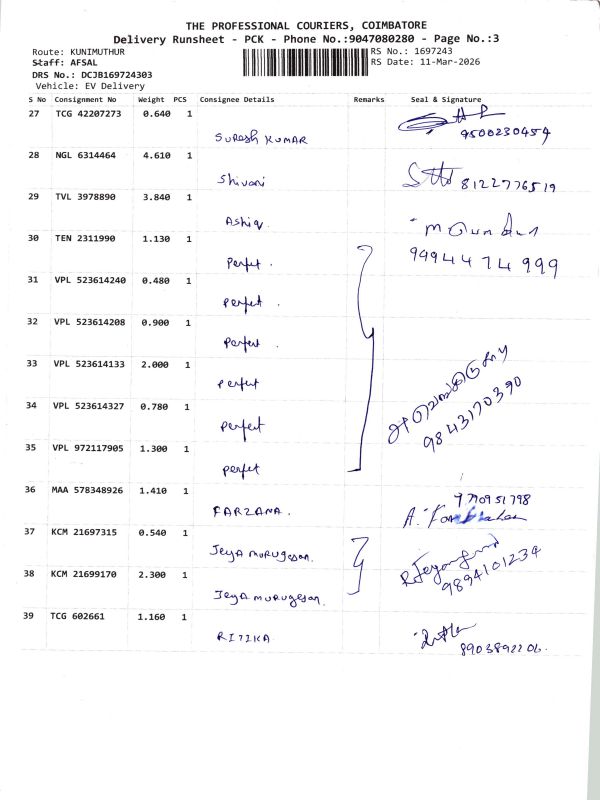 THE PROFESSIONAL COURIERS, COIMBATORE
Delivery Runsheet - PCK - Phone No.:9047080280 - Page No.:3
Route: KUNIMUTHUR
Staff: AFSAL
DRS No.: DCJB169724303
Vehicle: EV Delivery
RS No.: 1697243
RS Date: 11-Mar-2026
S No Consignment No Weight PCS Consignee Details Remarks Seal & Signature
27 TCG 42207273 0.640 1
Suresh Kumar 9500230454
28 NGL 6314464 4.610 1
Shivani 8122776519
29 TVL 3978890 3.840 1
Ashiq.
30 TEN 2311990 1.130 1
Perfet. 9494474999
31 VPL 523614240 0.480 1
Perfet.
32 VPL 523614208 0.900 1
Perfect.
33 VPL 523614133 2.000 1
Perfect
9843170390
34 VPL 523614327 0.780 1
Perfect
35 VPL 972117905 1.300 1
Perfet
36 MAA 578348926 1.410 1
FARZANA.
37 KCM 21697315 0.540 1
Jeya murugesan.
9894101234
38 KCM 21699170 2.300 1
Jeya murugesan.
39 TCG 602661 1.160 1
RITIKA